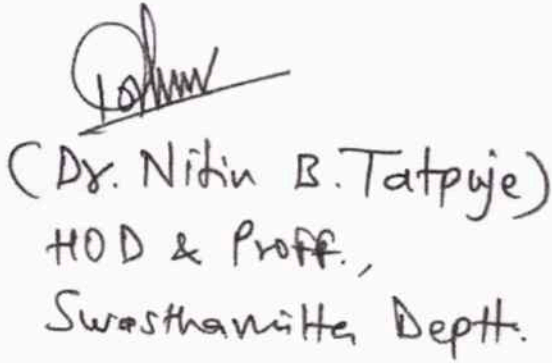 (Dr. Nitin B. Tatpuje)
HOD & Proff.,
Swasthavritta Deptt.